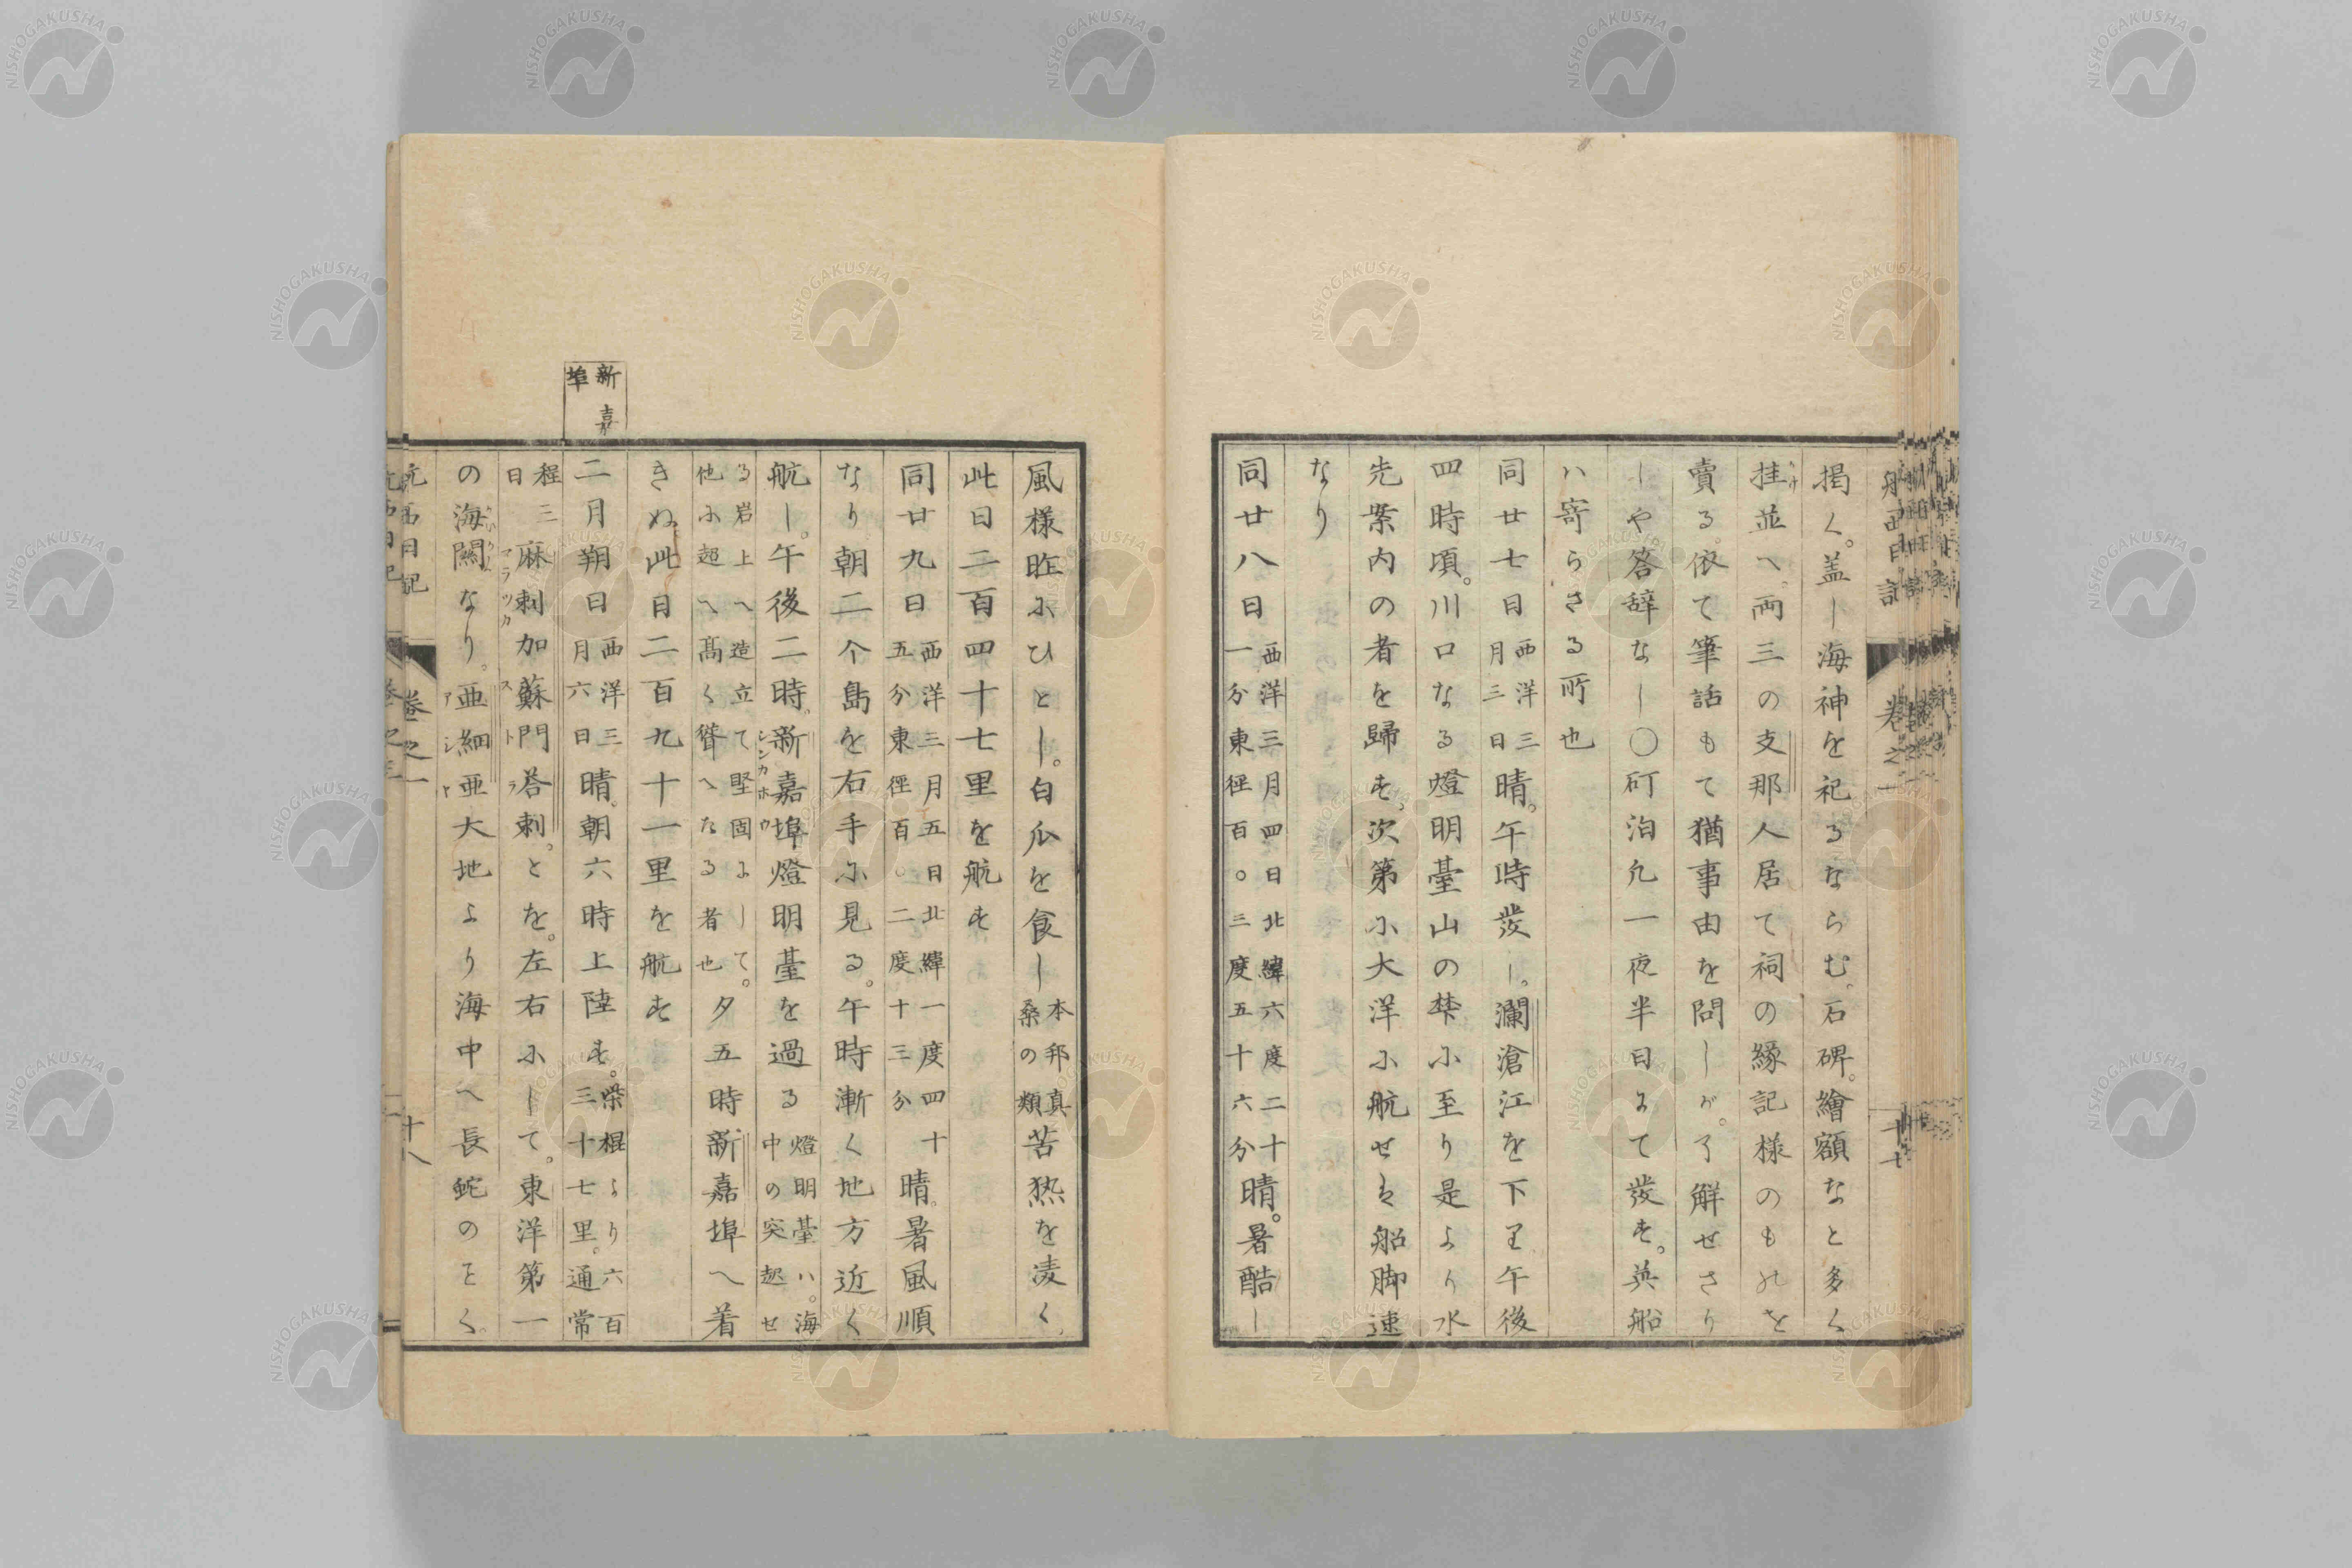 航西日記
卷之一
十七
掲く。盖し海神を祀るならむ。石碑。繪額なと多く
挂並へ。両三の支那人居て祠の縁記様のものを
賣る。依て筆話もて猶事由を問しが。了解せさり
しや答辞なし〇矴泊凢一夜半日にて發す。英船
ハ寄らさる所也
同廿七日西洋三月三日晴。午時發し。瀾滄江を下り午後
四時頃。川口なる燈明臺山の埜に至り是より水
先案内の者を歸す。次第に大洋に航せは船脚速
なり
同廿八日西洋三月四日北緯六度二十一分東徑百〇三度五十六分晴。暑酷し
風様昨にひとし。白瓜を食し本邦真桑の類苦热を凌く。
此日二百四十七里を航す
同廿九日西洋三月五日北緯一度四十五分東徑百〇二度十三分晴。暑風順
なり朝二个島を右手に見る。午時漸く地方近く
航し。午後二時。新嘉埠燈明臺を過る燈明臺ハ。海中の突起せ
る岩上へ造立て堅固にして。他に超へ高く聳へたる者也夕五時新嘉埠へ着
きぬ此日二百九十一里を航す
新嘉埠
シンカホウ
二月朔日西洋三月六日晴。朝六時上陸す。柴棍より六百三十七里。通常
程三日麻剌加蘇門荅剌。とを。左右にして。東洋第一
マラッカ
ストラ
の海關なり。亜細亜大地より海中へ長蛇のこく。
かいかん
アシヤ
航西日記
卷之一
十八